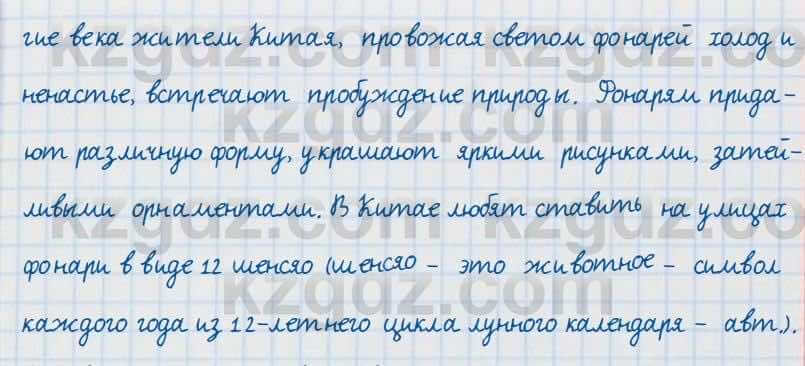 гие века жители Китая, провожая светом фонарей холод и
ненастье, встречают пробуждение природы. Фонарям прида-
ют различную форму, украшают яркими рисунками, затей-
ливыми орнаментами. В Китае любят ставить на улицах
фонари в виде 12 шенсяо (шенсяо - это животное - символ
каждого года из 12-летнего цикла лунного календаря - авт.).
kzgdz.com
kzgdz.com
kzgdz.com
kzgdz.com
kzgdz.com
kzgdz.com